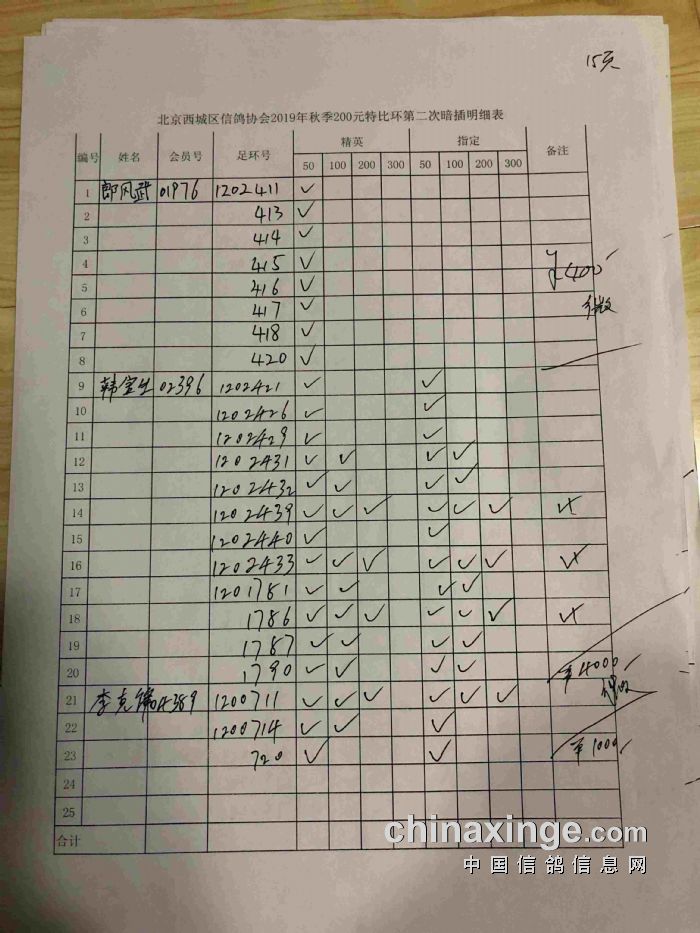 15页
北京西城区信鸽协会2019年秋季200元特比环第二次暗插明细表
编号 姓名 会员号 足环号 精英 指定 备注
50 100 200 300 50 100 200 300
1 郎风武 01976 1202411 ✓
2 413 ✓
3 414 ✓
4 415 ✓ ¥400
5 416 ✓
6 417 ✓
7 418 ✓
8 420 ✓
9 韩宝生 02396 1202421 ✓ ✓
10 1202426 ✓ ✓
11 1202429 ✓ ✓
12 1202431 ✓ ✓ ✓ ✓
13 1202432 ✓ ✓ ✓ ✓
14 1202439 ✓ ✓ ✓ ✓ ✓ ✓
15 1202440 ✓ ✓
16 1202433 ✓ ✓ ✓ ✓ ✓ ✓
17 1201781 ✓ ✓ ✓ ✓
18 1786 ✓ ✓ ✓ ✓ ✓ ✓
19 1787 ✓ ✓ ✓ ✓
20 1790 ✓ ✓ ✓ ✓ ¥4000
21 李克 04389 1200711 ✓ ✓ ✓ ✓ ✓ ✓
22 1200714 ✓ ✓ ✓
23 720 ✓ ✓ ¥1000
24
25
合计
chinaxinge.com
中国信鸽信息网